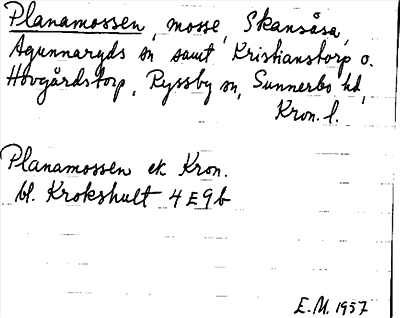 Planamossen, mosse, Skansåsa,
Agunnaryds sn samt Kristianstorp o.
Hovgårdstorp, Ryssby sn, Sunnerbo hd,
Kron. l.
Planamossen ek Kron.
bl. Krokshult 4E9b
E.M. 1957